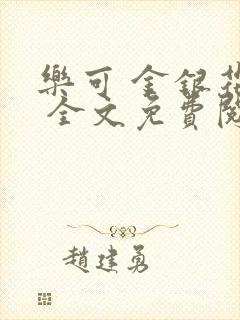 樂可 金銀花
全文免費閱
趙建勇